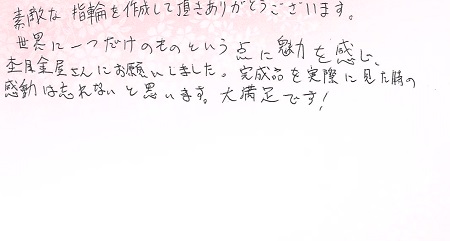 素敵な指輪を作成して頂きありがとうございます。
世界に一つだけのものという点に魅力を感じ、
杢目金屋さんにお願いしました。完成品を実際に見た時の
感動は忘れないと思います。大満足です!